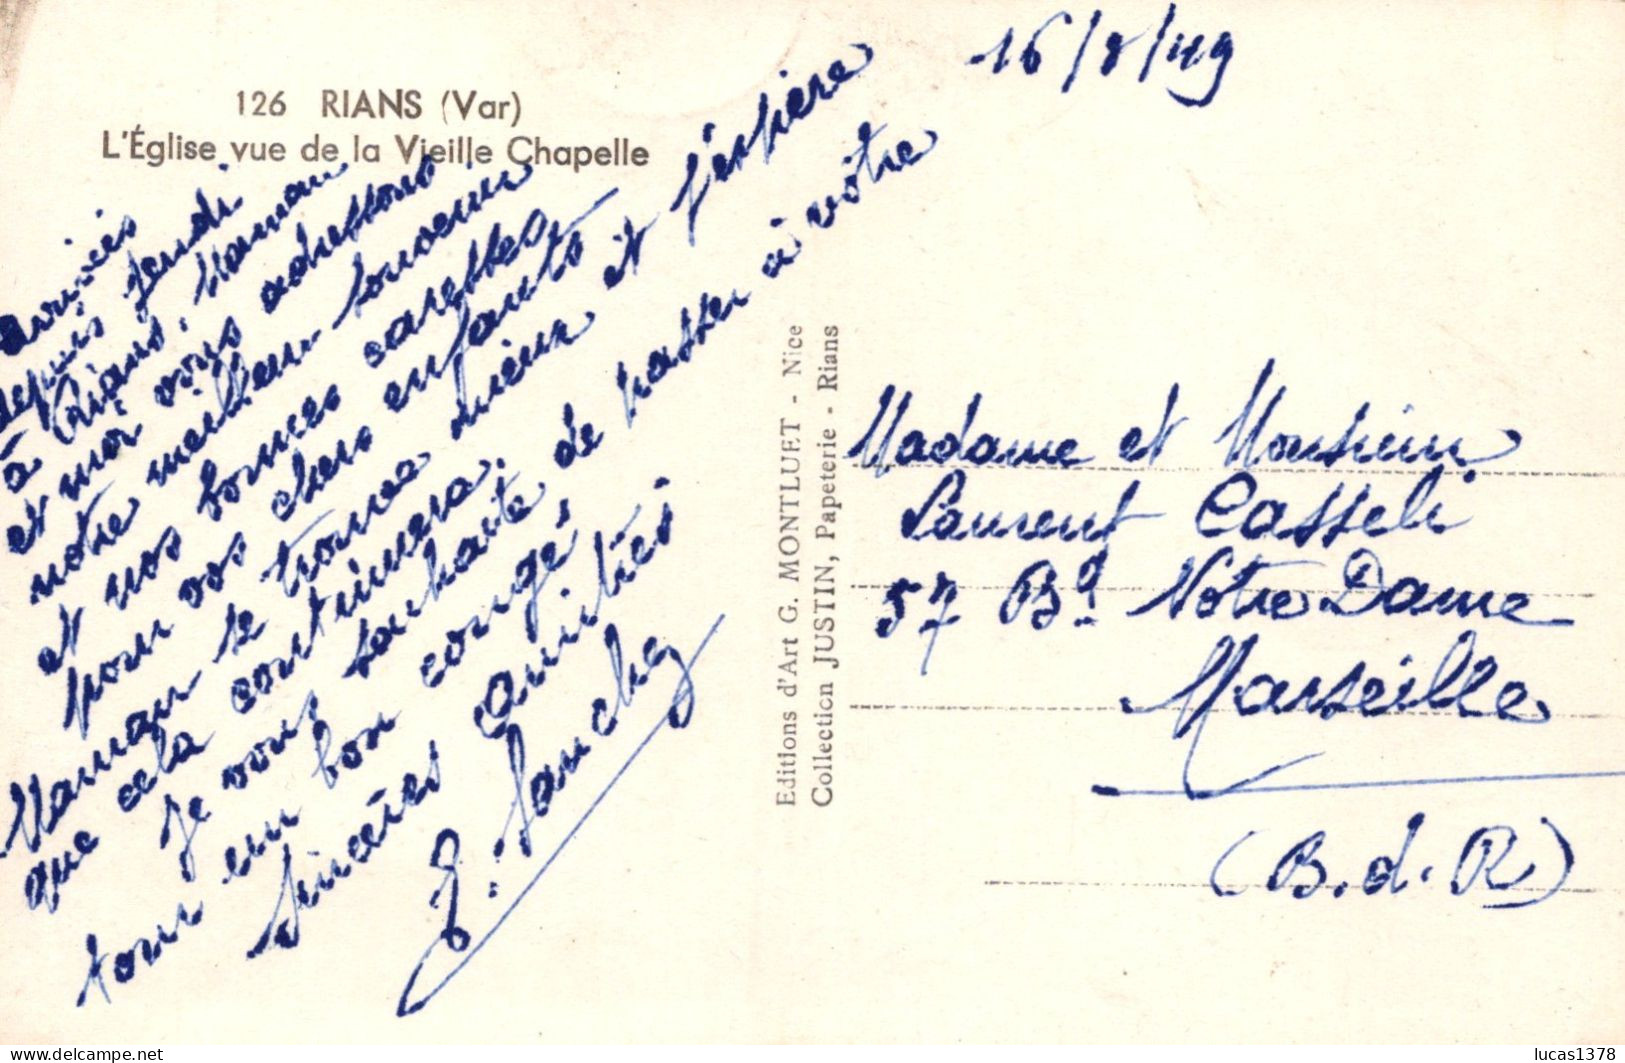 126 RIANS (Var)
L'Église vue de la Vieille Chapelle
16/8/49
arrivés
depuis jeudi
à Rians, Maman
et moi vous adressons
notre meilleur souvenir
et nos bonnes caresses
pour vos chers enfants
Maman se trouve mieux et j'espère
que cela continuera.
Je vous souhaite de passer à vôtre
tour un bon congé,
sincères amitiés
Sanchez
Editions d'Art G. MONTLUET - Nice
Collection JUSTIN, Papeterie - Rians
Madame et Monsieur
Laurent Casseli
57 Bd Notre Dame
Marseille
(B.d.R)
delcampe.net
lucas1378